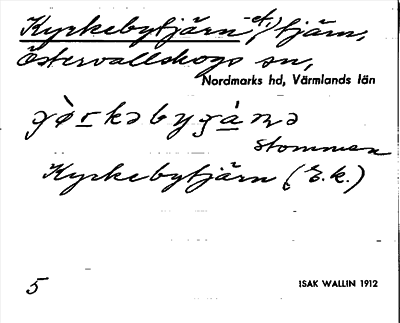 Kyrkebytjärn -et, tjärn,
Östervallskogs sn,
Nordmarks hd, Värmlands län
Stommen
Kyrkebytjärn (E.k.)
5
ISAK WALLIN 1912